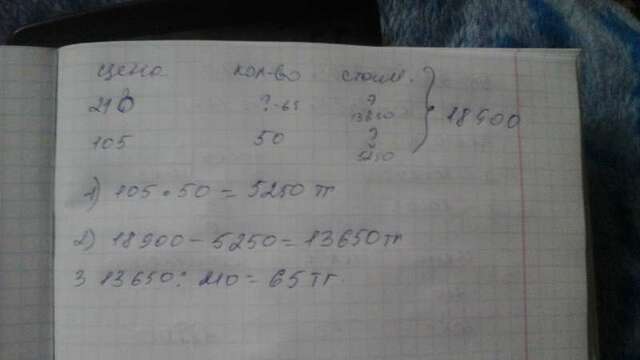 цена кол-во стоим.
210 ?-65 ?
13650 18900
105 50 ?
5250
1) 105 • 50 = 5250 тг
2) 18900 - 5250 = 13650 тг
3 13650 : 210 = 65 тг